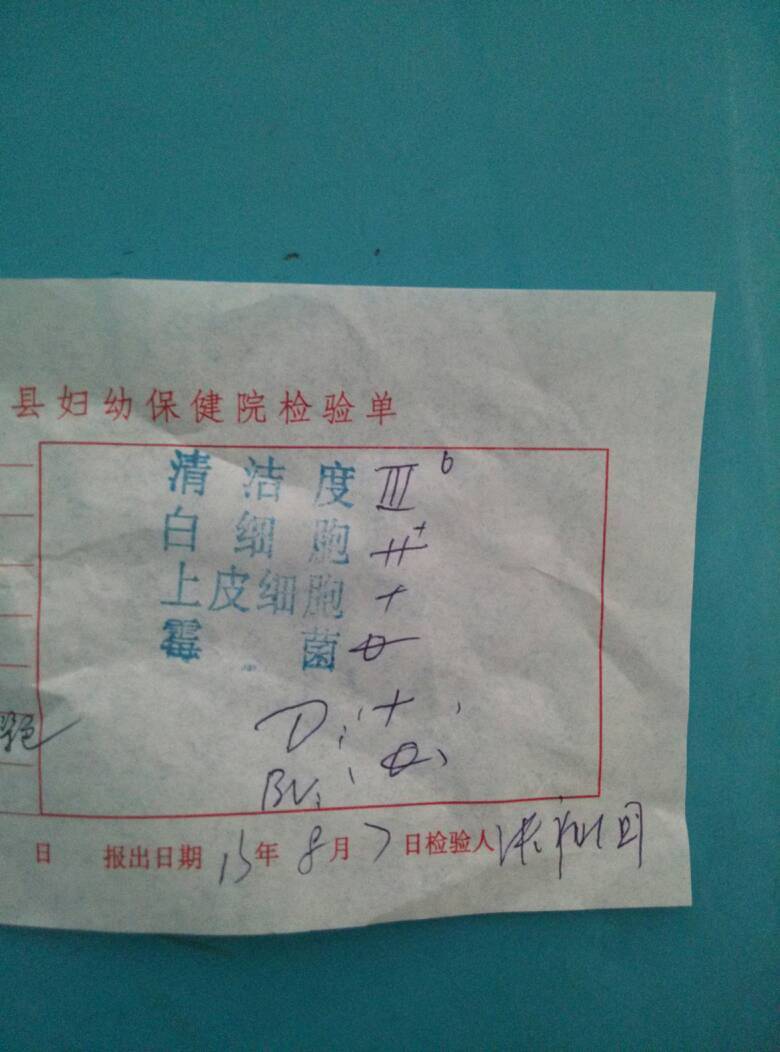 县妇幼保健院检验单
清洁度 III b
白细胞 ++
上皮细胞 +
霉菌
D: +
BV:
日 报出日期 13年8月7日检验人